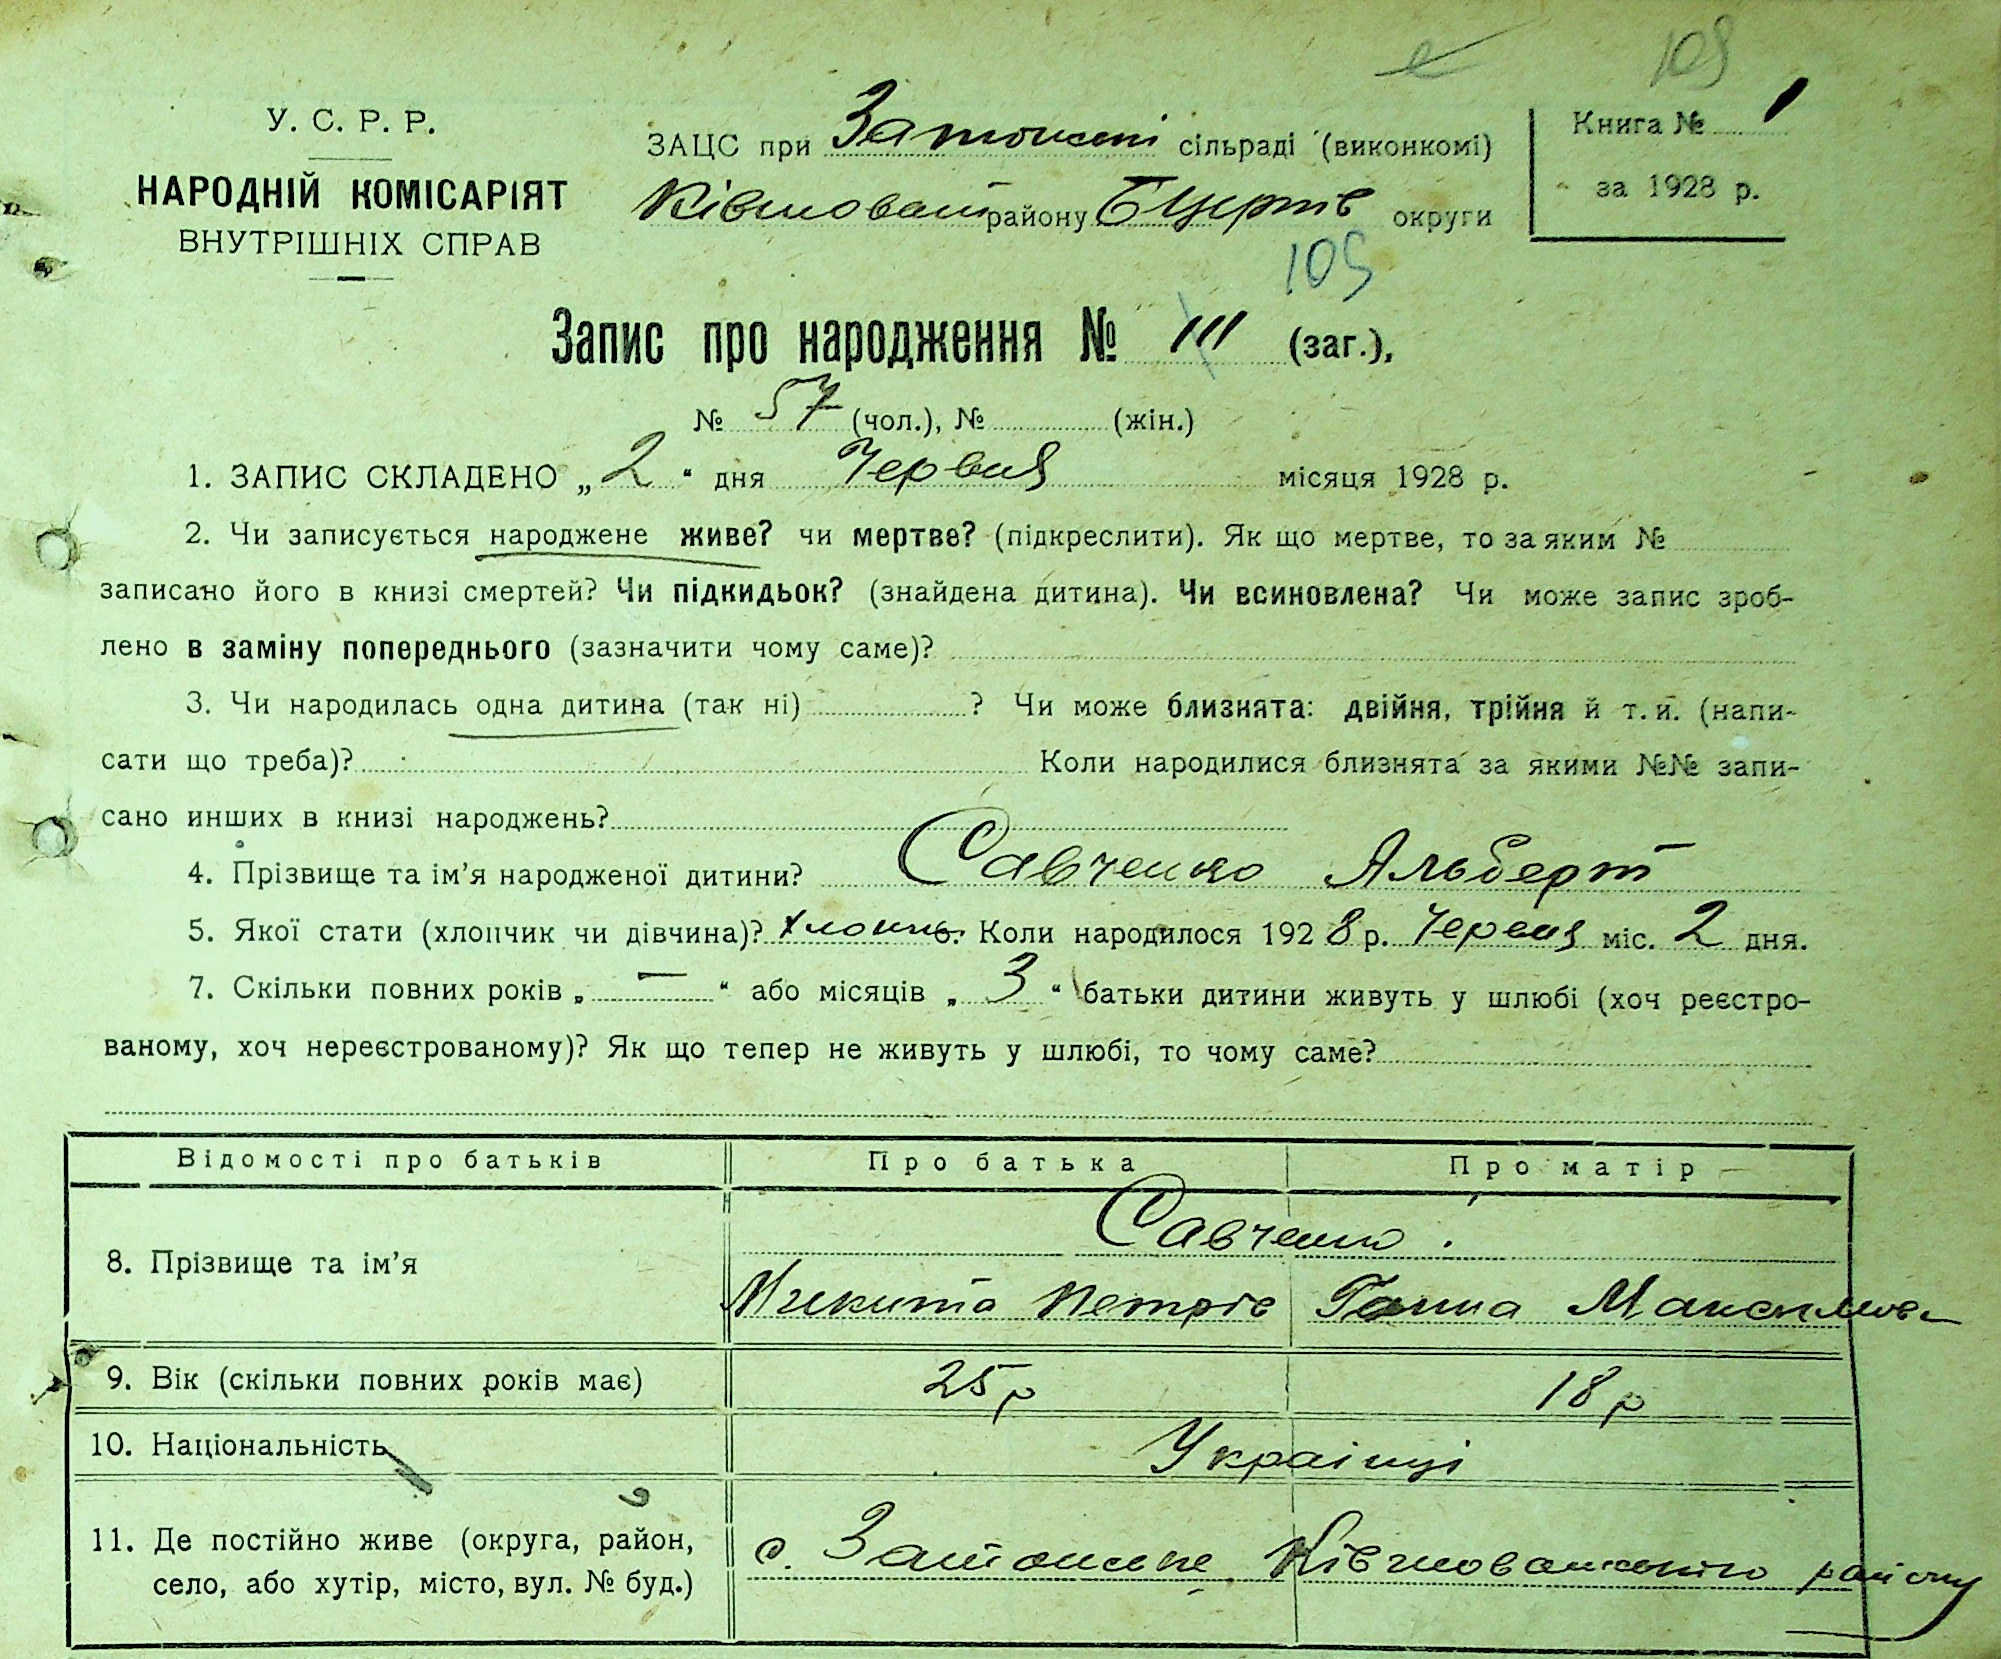 109
У. С. Р. Р.
НАРОДНІЙ КОМІСАРІЯТ
ВНУТРІШНІХ СПРАВ
ЗАЦС при сільраді (виконкомі)
району Бцерків округи
Книга № 1
за 1928 р.
109
Запис про народження № 111 (заг.),
№ 57 (чол.), № (жін.)
1. ЗАПИС СКЛАДЕНО „ 2 “ дня Червня місяця 1928 р.
2. Чи записується народжене живе? чи мертве? (підкреслити). Як що мертве, то за яким №
записано його в книзі смертей? Чи підкидьок? (знайдена дитина). Чи всиновлена? Чи може запис зроб-
лено в заміну попереднього (зазначити чому саме)?
3. Чи народилась одна дитина (так ні) ? Чи може близнята: двійня, трійня й т. и. (напи-
сати що треба)? Коли народилися близнята за якими №№ запи-
сано инших в книзі народжень?
4. Прізвище та ім’я народженої дитини? Савченко Альберт
5. Якої стати (хлопчик чи дівчина)? хлопчик 6. Коли народилося 1928 р. Червня міс. 2 дня.
7. Скільки повних років „ — “ або місяців „ 3 “ батьки дитини живуть у шлюбі (хоч реєстро-
ваному, хоч нереєстрованому)? Як що тепер не живуть у шлюбі, то чому саме?
Відомості про батьків Про батька Про матір
8. Прізвище та ім’я Савченко
Микита Петров Ганна Максимов
9. Вік (скільки повних років має) 25 р 18 р
10. Національність Українці
11. Де постійно живе (округа, район,
село, або хутір, місто, вул. № буд.) с. району